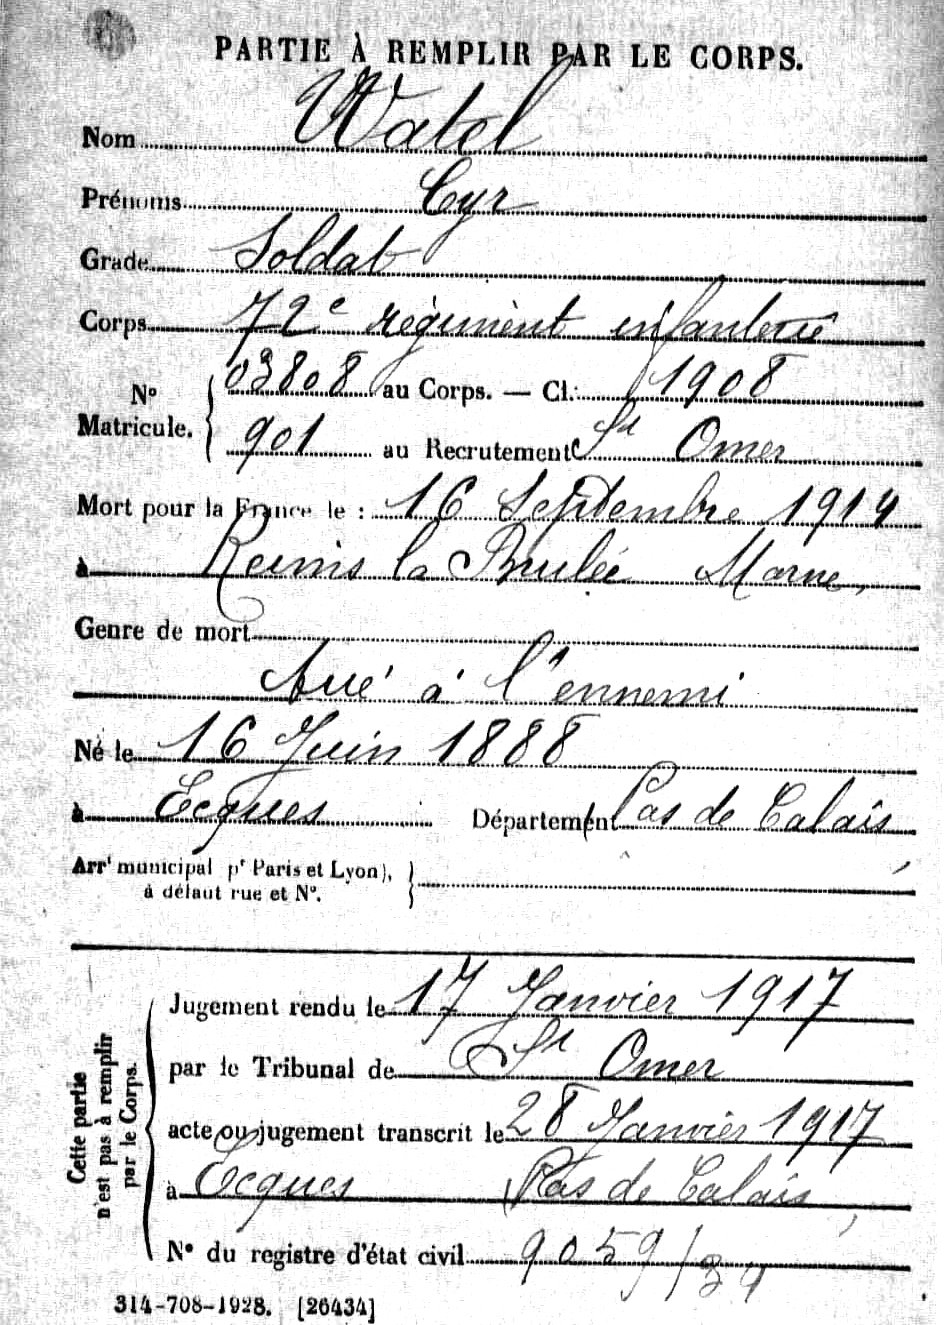 PARTIE À REMPLIR PAR LE CORPS.
Nom Watel
Prénoms Cyr
Grade Soldat
Corps 72e régiment infanterie
No Matricule. 03808 au Corps. — Cl. 1908
901 au Recrutement St Omer
Mort pour la France le : 16 Septembre 1914
à Reims la Brulée Marne
Genre de mort
tué à l'ennemi
Né le 16 Juin 1888
à Ecques Département Pas de Calais
Arrt municipal pr Paris et Lyon),
à défaut rue et No.
Cette partie n'est pas à remplir par le Corps.
Jugement rendu le 17 Janvier 1917
par le Tribunal de St Omer
acte ou jugement transcrit le 28 Janvier 1917
à Ecques Pas de Calais
No du registre d'état civil 9059/34
314-708-1928. [26434]